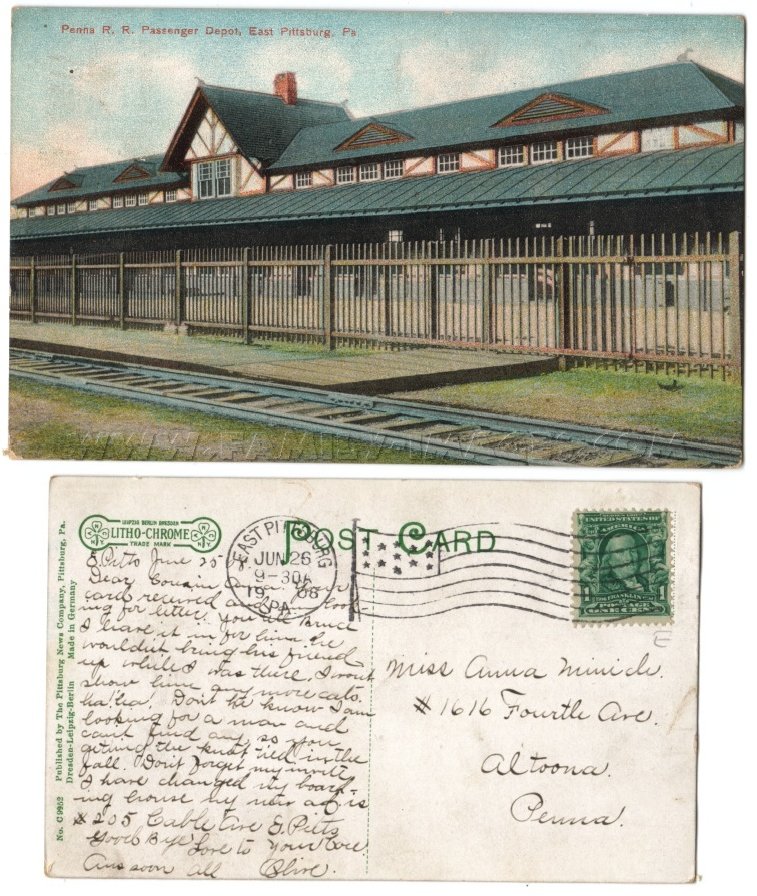 Penna R. R. Passenger Depot, East Pittsburg, Pa
WWW.FAMILY-IMAGES.COM
LEIPZIG BERLIN DRESDEN
LITHO-CHROME
TRADE MARK
POST CARD
EAST PITTSBURG
JUN 26
9-30A
1908
PA.
UNITED STATES OF
AMERICA
FRANKLIN
1 1
POSTAGE
ONE CENT
E
No. C 9952 Published by The Pittsburg News Company, Pittsburg, Pa.
Dresden-Leipzig-Berlin Made in Germany
E. Pitts June 25
Dear Cousin Anna Your
card received and am look-
ing for letter. you tell
I have it in for him he
wouldn't bring his friend
up while I was there, I wont
show him any more cats.
ha! ha! Don't he know I am
looking for a man and
cant find any so you
the knot tied in the
fall. Don't forget my invite
I have changed my board-
ing house my new ad is
#205 Cable Ave E. Pitts
Good Bye
Love to
Ans soon all Olive.
Miss Anna
#1616 Fourth Ave.
Altoona.
Penna.